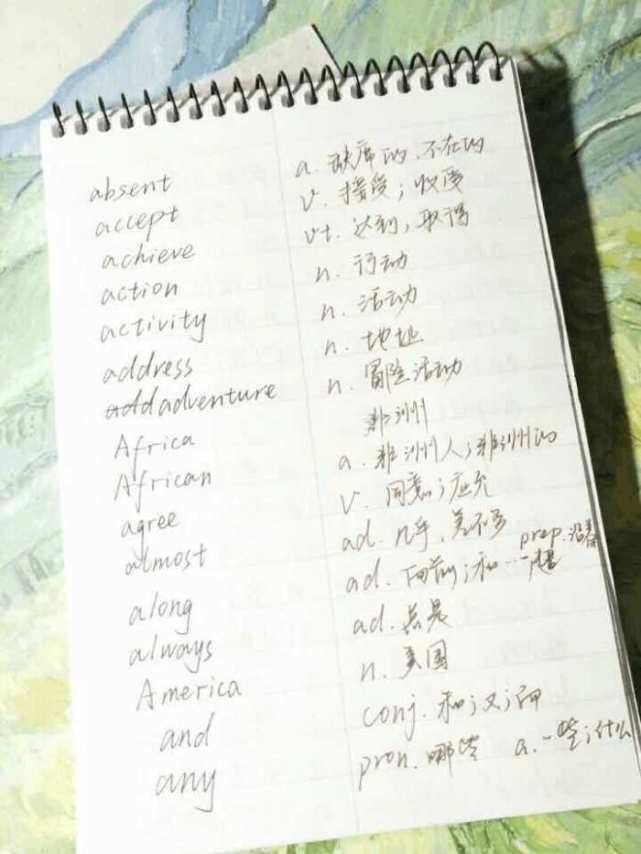 absent a. 缺席的, 不在的
accept v. 接受; 收受
achieve vt. 达到, 取得
action n. 行动
activity n. 活动
address n. 地址
adventure n. 冒险活动
Africa 非洲
African a. 非洲人; 非洲的
agree v. 同意; 应允
almost ad. 几乎, 差不多
along ad. 向前; 和…一起 prep. 沿着
always ad. 总是
America n. 美国
and conj. 和; 又; 而
any pron. 哪些 a. 一些; 什么